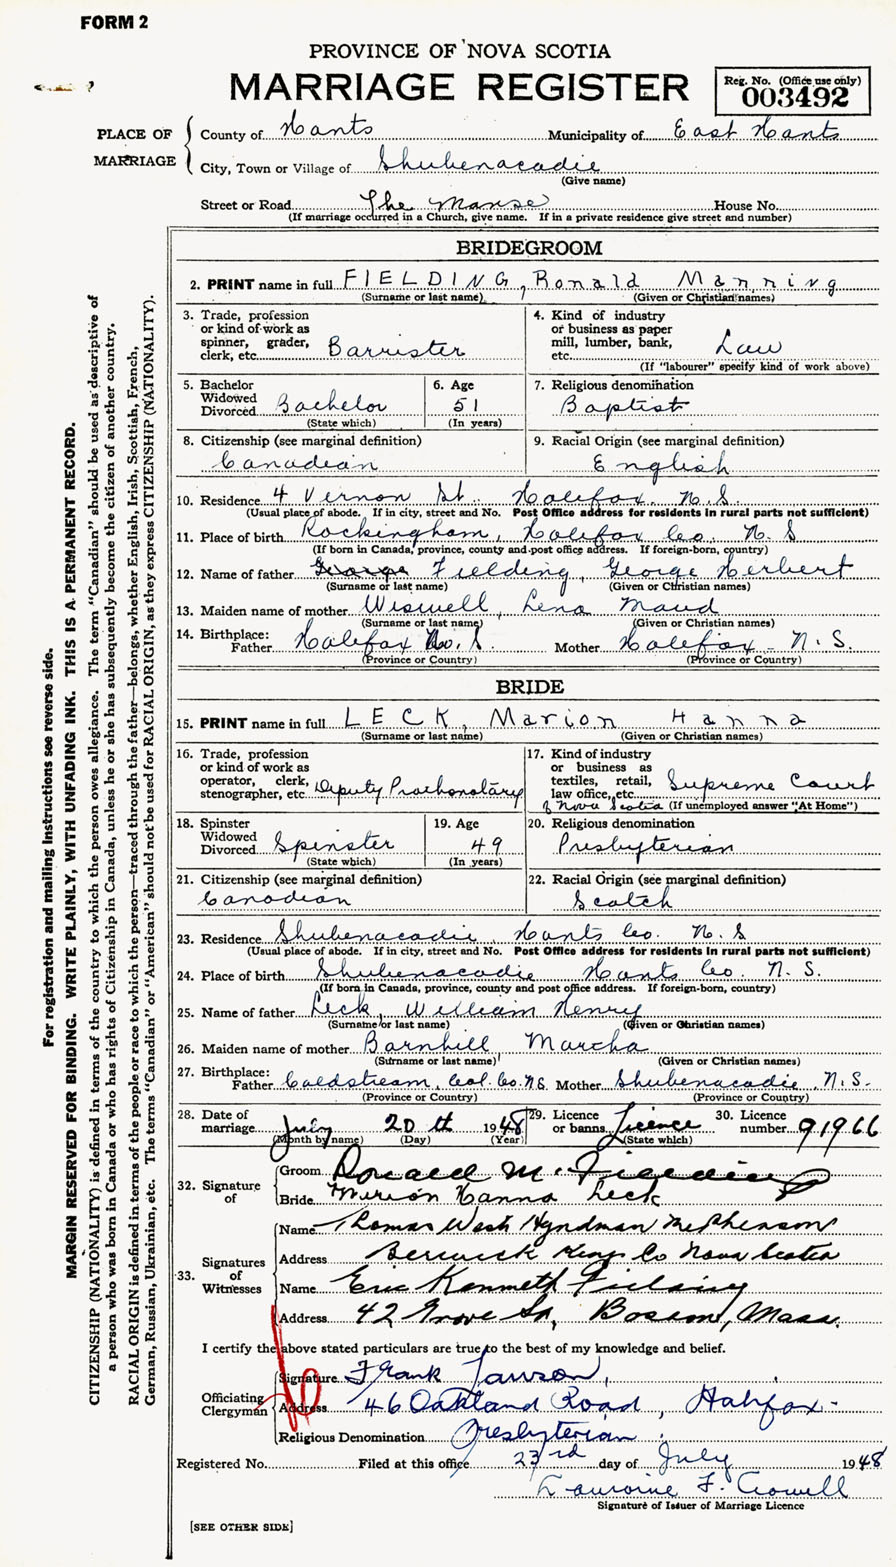 FORM 2
PROVINCE OF NOVA SCOTIA
MARRIAGE REGISTER
Reg. No. (Office use only)
003492
PLACE OF MARRIAGE
County of Hants Municipality of East Hants
City, Town or Village of Shubenacadie
(Give name)
Street or Road The Manse House No.
(If marriage occurred in a Church, give name. If in a private residence give street and number)
BRIDEGROOM
2. PRINT name in full FIELDING, Ronald Manning
(Surname or last name) (Given or Christian names)
3. Trade, profession
or kind of work as
spinner, grader,
clerk, etc. Barrister
4. Kind of industry
or business as paper
mill, lumber, bank,
etc. Law
(If "labourer" specify kind of work above)
5. Bachelor
Widowed
Divorced Bachelor
(State which)
6. Age
51
(In years)
7. Religious denomination
Baptist
8. Citizenship (see marginal definition)
Canadian
9. Racial Origin (see marginal definition)
English
10. Residence 4 Vernon St. Halifax N.S.
(Usual place of abode. If in city, street and No. Post Office address for residents in rural parts not sufficient)
11. Place of birth Rockingham, Halifax Co. N.S
(If born in Canada, province, county and post office address. If foreign-born, country)
12. Name of father George Fielding, George Herbert
(Surname or last name) (Given or Christian names)
13. Maiden name of mother Wiswell, Lena Maud
(Surname or last name) (Given or Christian names)
14. Birthplace:
Father Halifax N.S. Mother Halifax N.S.
(Province or Country) (Province or Country)
BRIDE
15. PRINT name in full LECK, Marion Hanna
(Surname or last name) (Given or Christian names)
16. Trade, profession
or kind of work as
operator, clerk,
stenographer, etc. Deputy Prothonotary
17. Kind of industry
or business as
textiles, retail,
law office, etc. Supreme Court
of Nova Scotia (If unemployed answer "At Home")
18. Spinster
Widowed
Divorced Spinster
(State which)
19. Age
49
(In years)
20. Religious denomination
Presbyterian
21. Citizenship (see marginal definition)
Canadian
22. Racial Origin (see marginal definition)
Scotch
23. Residence Shubenacadie, Hants Co. N.S
(Usual place of abode. If in city, street and No. Post Office address for residents in rural parts not sufficient)
24. Place of birth Shubenacadie Hants Co. N.S.
(If born in Canada, province, county and post office address. If foreign-born, country)
25. Name of father Leck, William Henry
(Surname or last name) (Given or Christian names)
26. Maiden name of mother Barnhill Martha
(Surname or last name) (Given or Christian names)
27. Birthplace:
Father Coldstream, Col. Co. N.S. Mother Shubenacadie, N.S.
(Province or Country) (Province or Country)
28. Date of
marriage July 20th 1948
(Month by name) (Day) (Year)
29. Licence
or banns Licence
(State which)
30. Licence
number 91966
32. Signature
of
Groom Ronald M. Fielding
Bride Marion Hanna Leck
33. Signatures
of
Witnesses
Name Thomas West Hyndman McPhearson
Address Berwick Kings Co Nova Scotia
Name Eric Kenneth Fielding
Address 42 Grove St, Boston, Mass.
I certify the above stated particulars are true to the best of my knowledge and belief.
Officiating
Clergyman
Signature Frank Lawson,
Address 46 Oakland Road, Halifax.
Religious Denomination Presbyterian.
Registered No. Filed at this office 23rd day of July 1948
F. Crowell
Signature of Issuer of Marriage Licence
[SEE OTHER SIDE]
For registration and mailing instructions see reverse side.
MARGIN RESERVED FOR BINDING. WRITE PLAINLY, WITH UNFADING INK. THIS IS A PERMANENT RECORD.
CITIZENSHIP (NATIONALITY) is defined in terms of the country to which the person owes allegiance. The term "Canadian" should be used as descriptive of
a person who was born in Canada or who has rights of Citizenship in Canada, unless he or she has subsequently become the citizen of another country.
RACIAL ORIGIN is defined in terms of the people or race to which the person—traced through the father—belongs, whether English, Irish, Scottish, French,
German, Russian, Ukrainian, etc. The terms "Canadian" or "American" should not be used for RACIAL ORIGIN, as they express CITIZENSHIP (NATIONALITY).